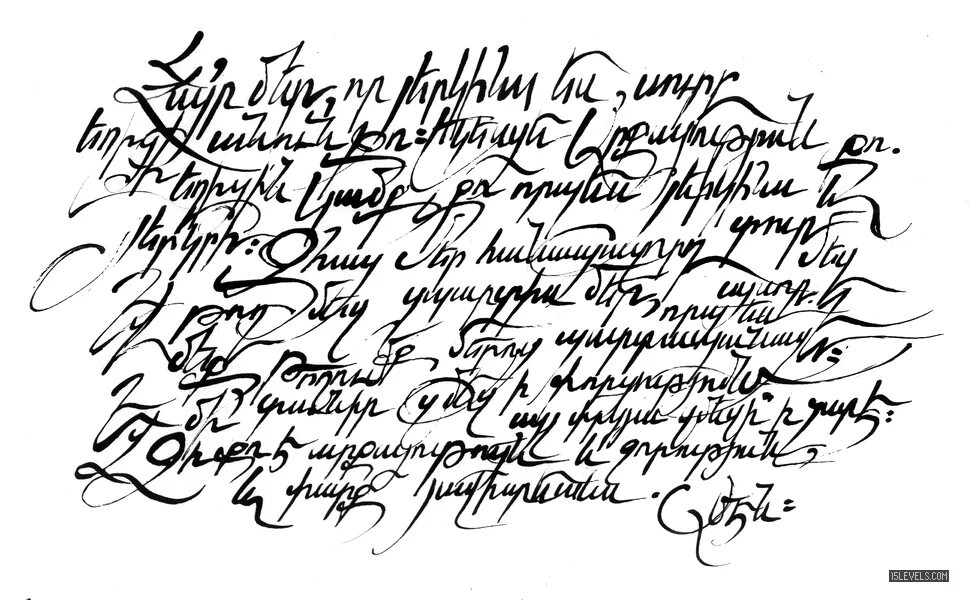 Հայր մեր, որ յերկինս ես, սուրբ
եղիցի անուն քո։ Եկեսցէ արքայութիւն քո.
եղիցին կամք քո որպէս յերկինս և
յերկրի։ Զհաց մեր հանապազորդ տուր մեզ
այսօր.
և թող մեզ զպարտիս մեր, որպէս և
մեք թողումք մերոց պարտապանաց։
և մի տանիր զմեզ ի փորձութիւն
այլ փրկեա զմեզ ի չարէ։
Զի քո է արքայութիւն և զօրութիւն,
և փառք յաւիտեանս. Ամէն։
15LEVELS.COM